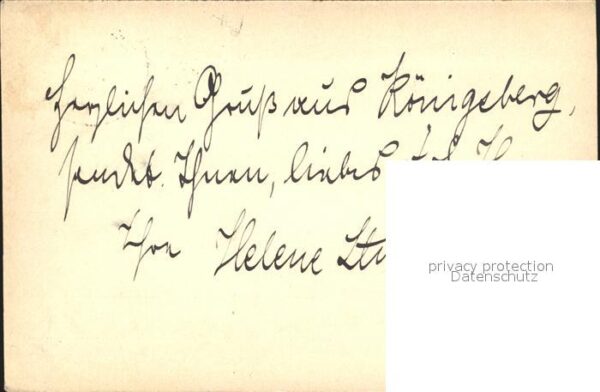 Herzlichen Gruß aus Königsberg,
sendet Ihnen, liebes
Ihre Helene
privacy protection
Datenschutz